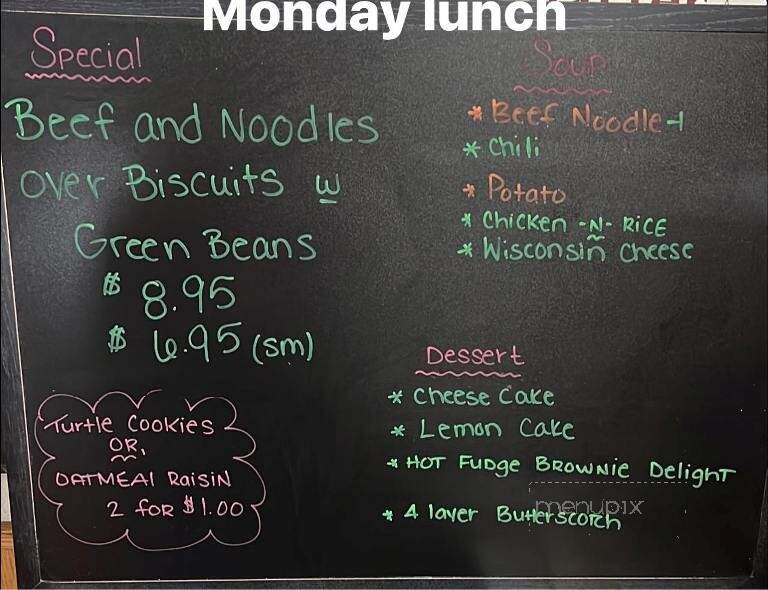 Monday lunch
Special
Beef and Noodles
over Biscuits w
Green Beans
$ 8.95
$ 6.95 (sm)
Turtle Cookies
OR,
OATMEAl RaisiN
2 foR $1.00
Soup
* Beef Noodle
* Chili
* Potato
* Chicken -N- RiCE
* Wisconsin Cheese
Dessert
* Cheese Cake
* Lemon Cake
* HOT FUDge BROWNie DeligHT
* 4 layer Butterscotch
menupix